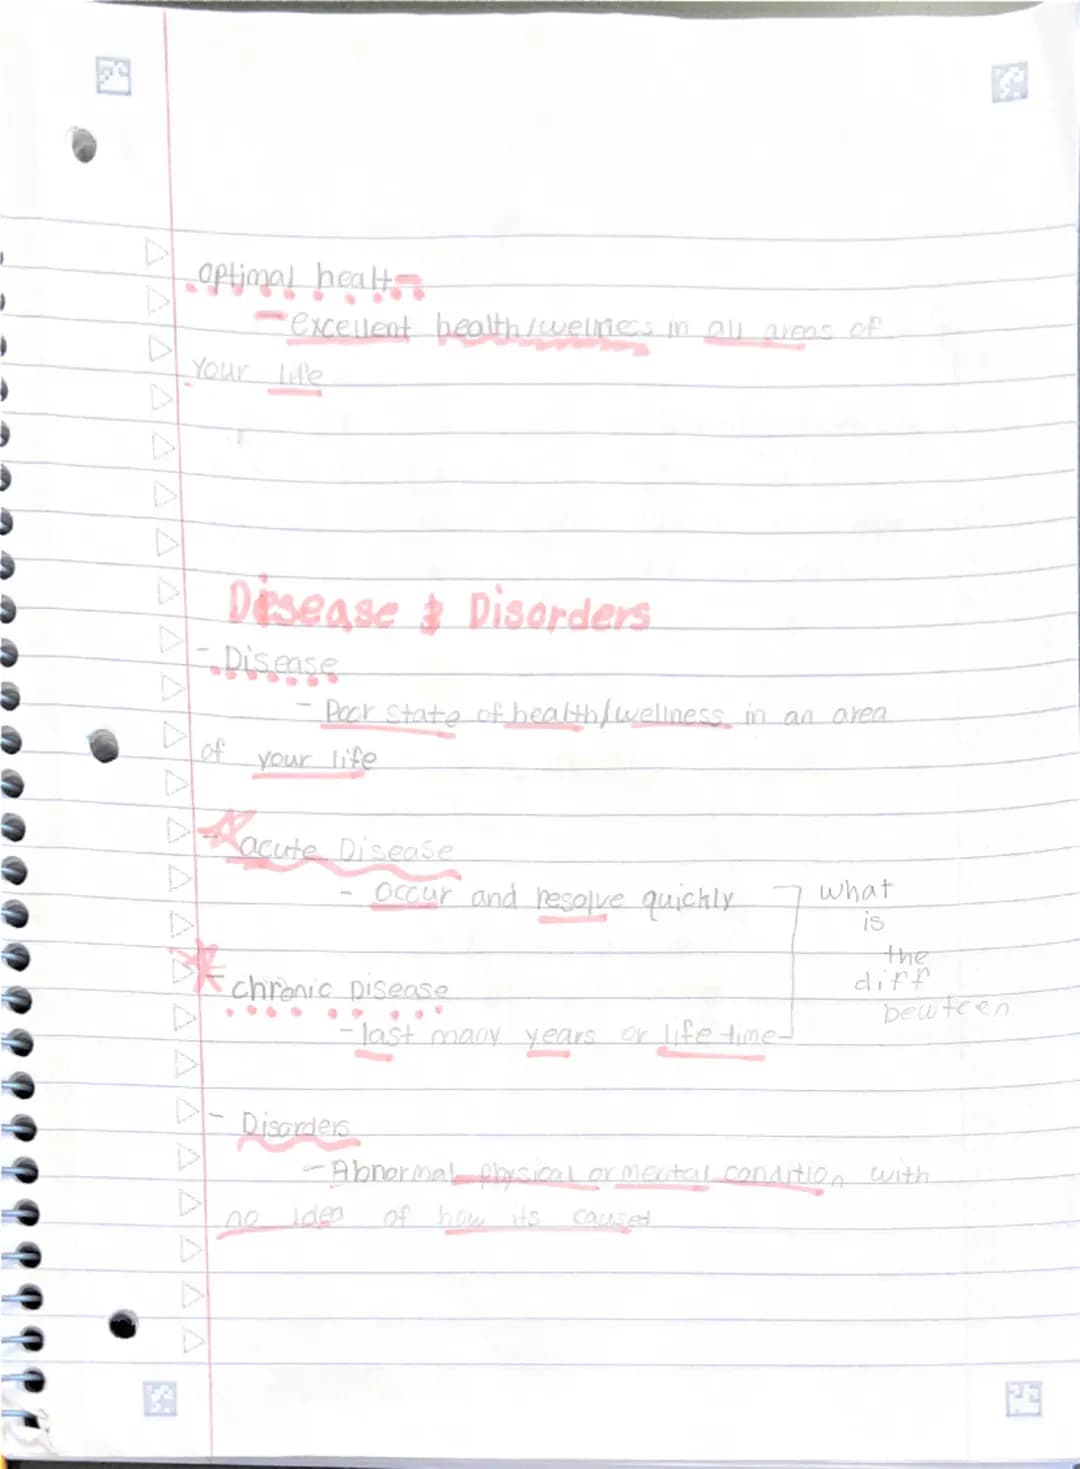 optimal health
- excellent health/wellness in all areas of
your life
Disease & Disorders
- Disease
- Poor state of health/wellness in an area
of your life
- acute Disease
- occur and resolve quickly
what
is
the
diff
bewteen
- chronic Disease
- last many years or life time
- Disorders
- Abnormal physical or mental condition with
no idea of how its caused